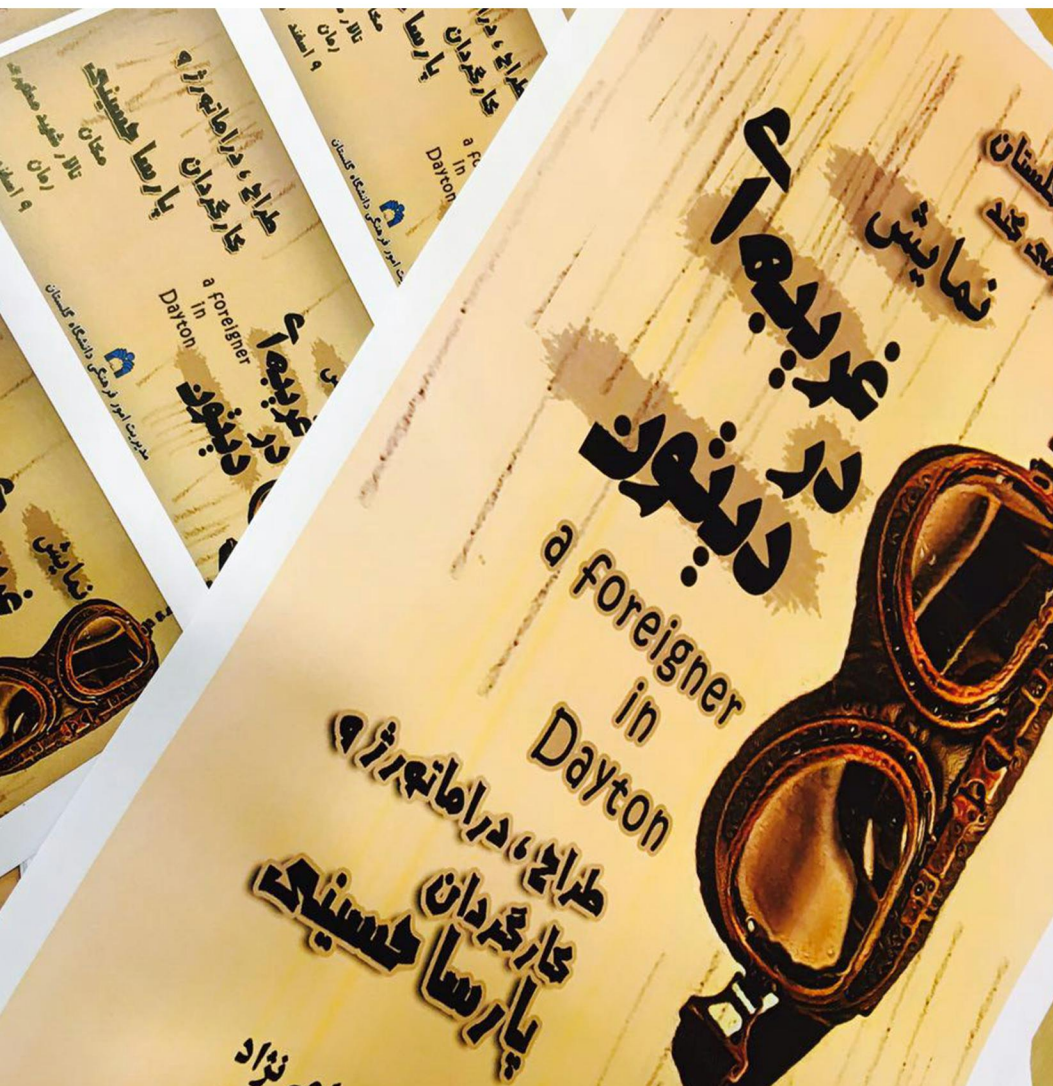 گلستان
می کند
نمایش
غریبه ای
در
دیتون
a foreigner
in
Dayton
طراح ، دراماتورژ و
کارگردان
پارسا حسینی
نژاد
طراح ، دراماتورژ و
کارگردان
پارسا حسینی
مکان
تالار شهید
زمان
۹ اسفند
a foreigner
in
Dayton
غریبه ای
در
دیتون
مدیریت امور فرهنگی دانشگاه گلستان
طراح ، درا
کارگردان
پارسا
مکان
تالار
زمان
۹ اسفند
in
Dayton
مدیریت امور فرهنگی دانشگاه گلستان
نمایش